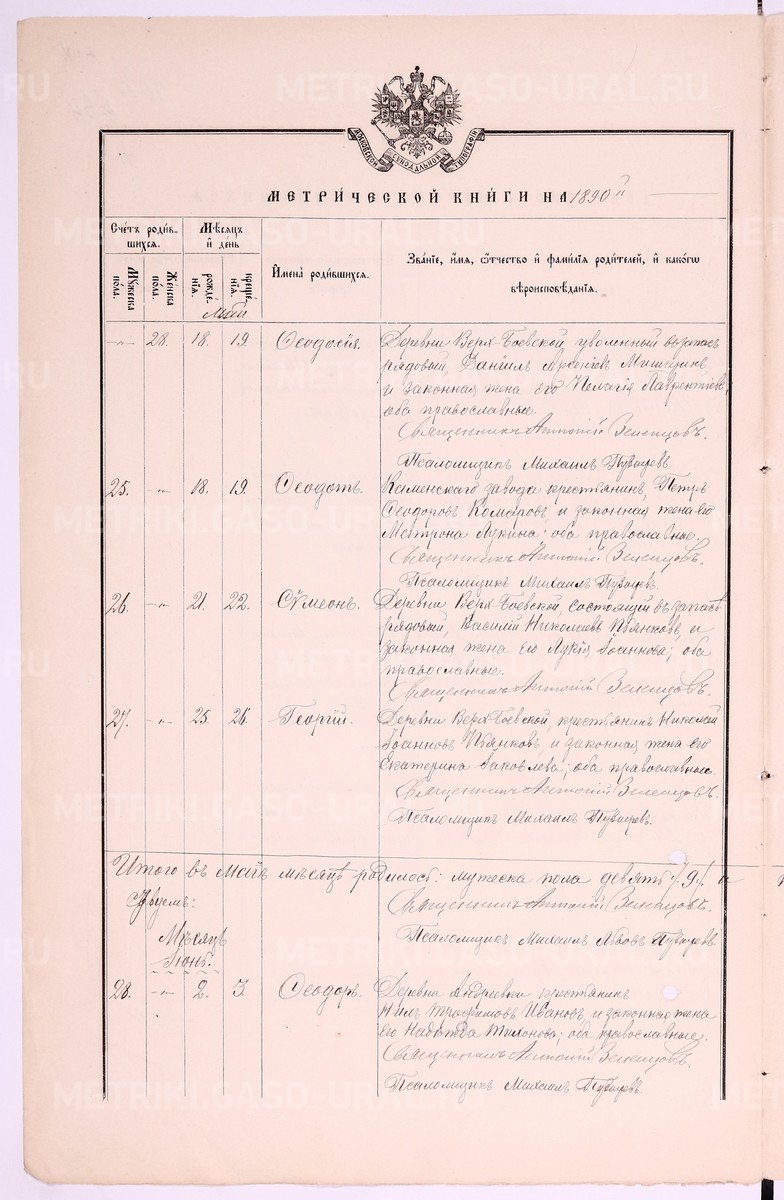 METRIKI.GASO-URAL.RU
МЕТРИЧЕСКОЙ КНИГИ НА 1890й
Счетъ родив-
шихся.
Мѣсяцъ
и день
Имена родившихся.
Званіе, имя, отчество и фамилія родителей, и какого
вѣроисповѣданія.
Мужеска пола.
Женска пола.
рожде-
нія.
креще-
нія.
Май
-„- 28. 18. 19. Ѳеодосія. Деревни Верх-Боевской, уволенный въ запасъ
рядовый, Даніилъ Арсеніевъ Мишаринъ
и законная жена его Пелагія Лаврентіева
оба православные.
Священникъ Антоній Зеленцовъ.
Псаломщикъ Михаилъ
25. -„- 18. 19. Ѳеодотъ. Каменскаго завода крестьянинъ, Петръ
Ѳеодоровъ Комаровъ, и законная жена его
Матрона Лукина: оба православные.
Священникъ Антоній Зеленцовъ.
Псаломщикъ Михаилъ
26. -„- 21. 22. Сѵмеонъ. Деревни Верх-Боевской, состоящій въ запасѣ
рядовый, Василій Николаевъ Пьянковъ, и
законная жена его Лукія Іоаннова; оба
православные.
Священникъ Антоній Зеленцовъ.
27. -„- 25. 26. Георгій. Деревни Верх-Боевской, крестьянинъ Николай
Іоанновъ Пьянковъ, и законная жена его
Екатерина Іаковлева; оба православные.
Священникъ Антоній Зеленцовъ.
Псаломщикъ Михаилъ
Итого въ Маѣ мѣсяцѣ родилось: мужеска пола девять /9/. а
Священникъ Антоній Зеленцовъ.
Псаломщикъ Михаилъ
Мѣсяцъ
Іюнь.
28. -„- 2. 3. Ѳеодоръ. Деревни Андреевки крестьянинъ
Нилъ Трофимовъ Ивановъ, и законная жена
его Надежда Тихонова; оба православные.
Священникъ Антоній Зеленцовъ.
Псаломщикъ Михаилъ